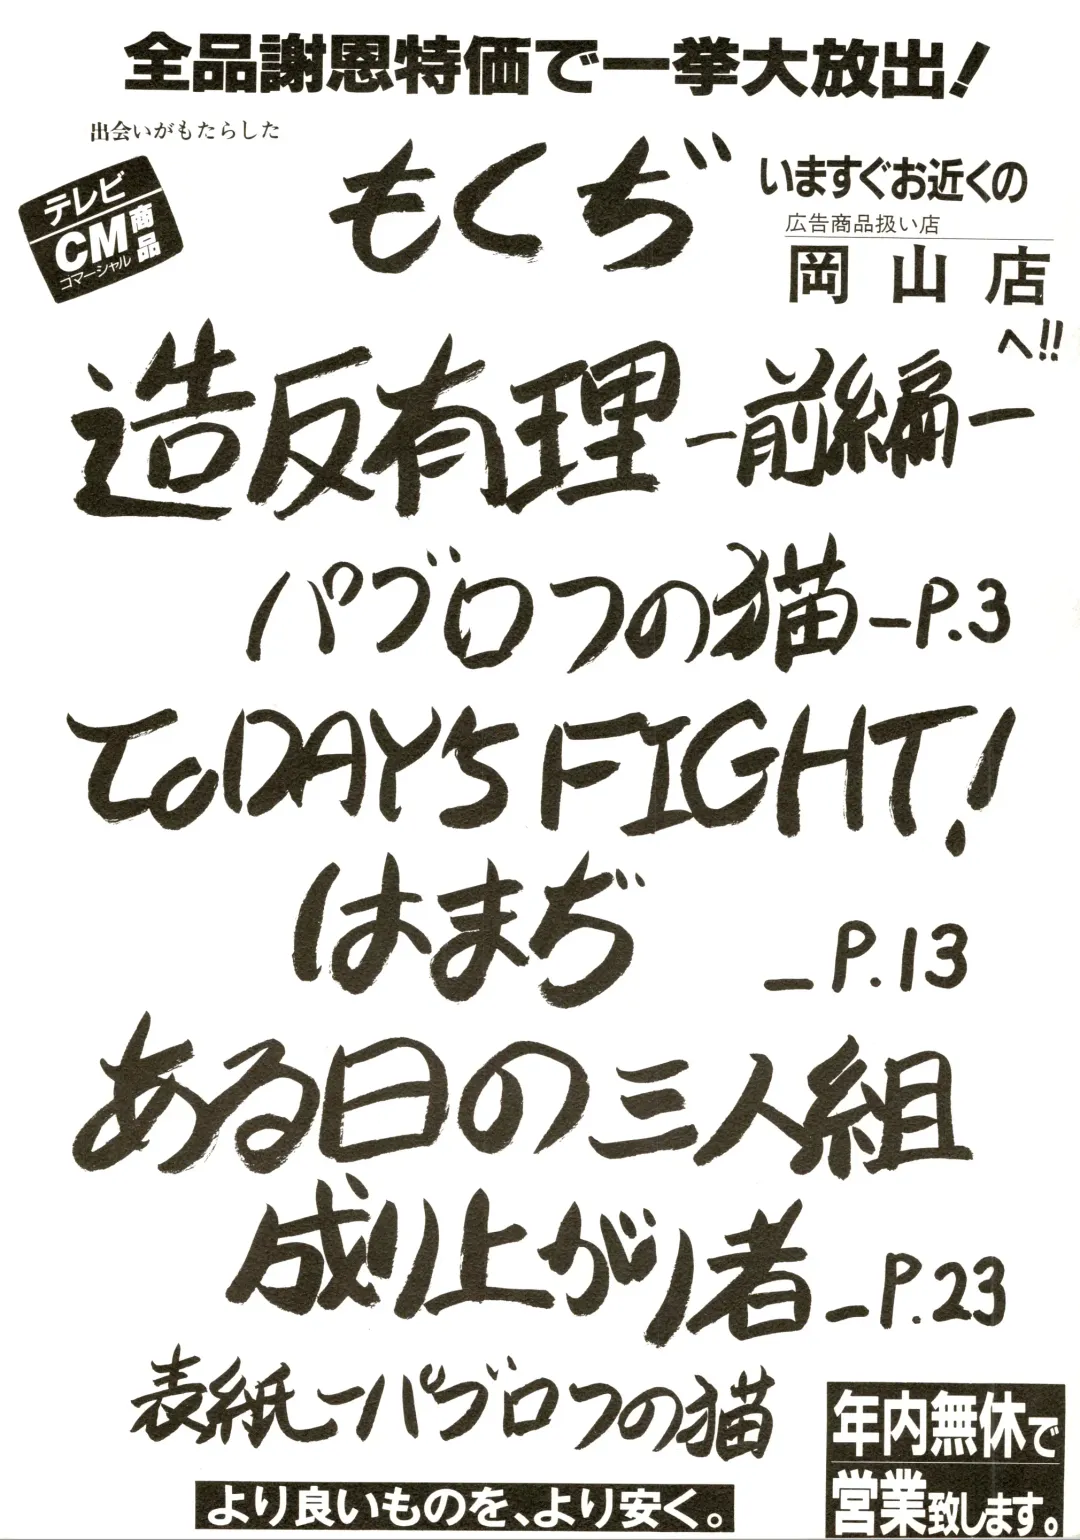 全品謝恩特価で一挙大放出!
出会いがもたらした
テレビ
CM商品
コマーシャル
もくぢ
いますぐお近くの
広告商品扱い店
岡山店
へ!!
造反有理ー前編ー
パブロフの猫ーP.3
ToDAY'S FIGHT!
はまぢ ーP.13
ある日の三人組
成り上がり者ーP.23
表紙ーパブロフの猫
年内無休で
営業致します。
より良いものを、より安く。